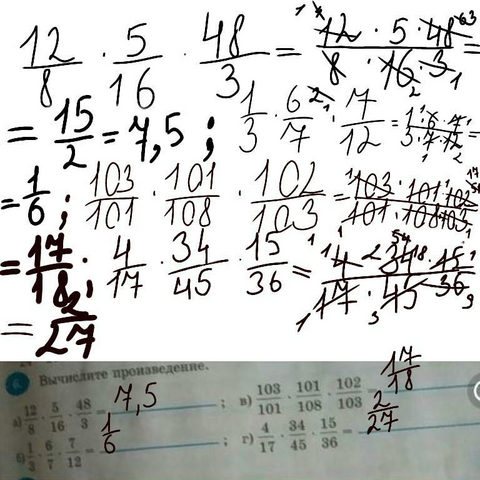 12/8 · 5/16 · 48/3 = 12 · 5 · 48 / 8 · 16 · 3 =
= 15/2 = 7,5 ; 1/3 · 6/7 · 7/12 = 1 · 6 · 7 / 3 · 7 · 12 =
= 1/6 ; 103/101 · 101/108 · 102/103 = 103 · 101 · 102 / 101 · 108 · 103 =
= 17/18 ; 4/17 · 34/45 · 15/36 = 4 · 34 · 15 / 17 · 45 · 36 =
= 2/27
6. Вычислите произведение.
а) 12/8 · 5/16 · 48/3 = 7,5 ; в) 103/101 · 101/108 · 102/103 = 17/18
б) 1/3 · 6/7 · 7/12 = 1/6 ; г) 4/17 · 34/45 · 15/36 = 2/27